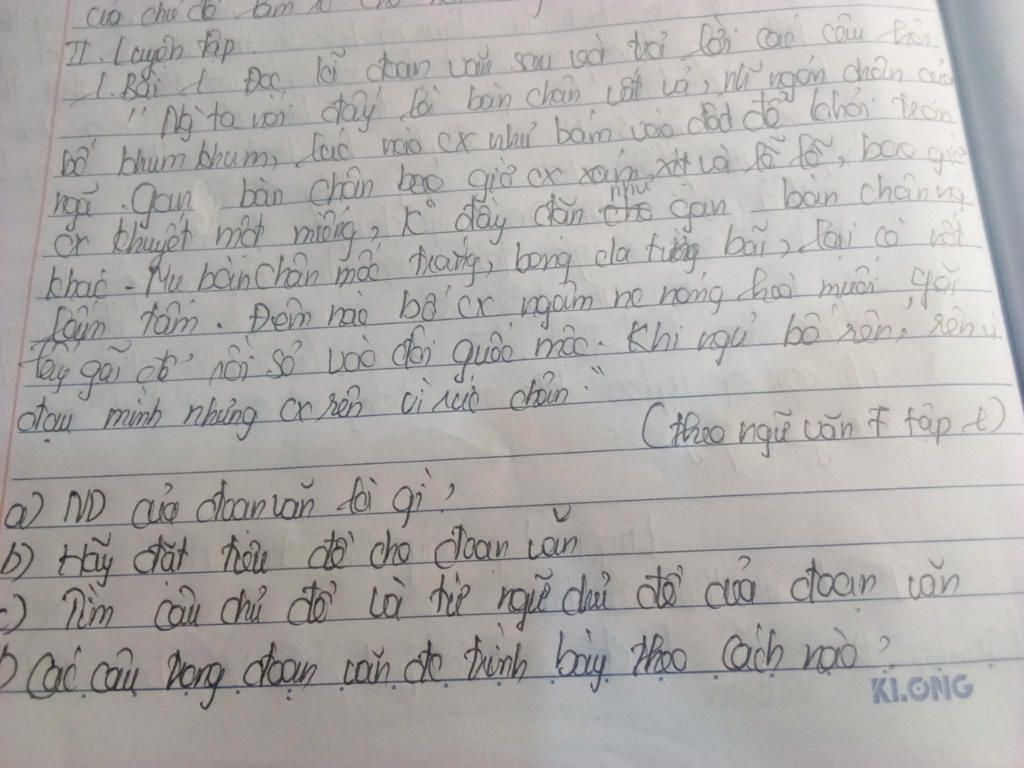 của chủ đề
II. Luyện tập
1. Bài 1. Đọc lại đoạn văn sau và trả lời các câu hỏi
"Ng ta nói đấy là bàn chân vất vả, nh~ ngón chân của
bố khum khum, lúc nào cx như bám vào đất để khỏi trơn
ngã. Gan bàn chân bao giờ cx xám xịt và lỗ rỗ, bao giờ
cx khuyết một miếng, K đầy đặn như gan bàn chân ng
khác. Mu bàn chân mốc trắng, bong da từng bãi, lại có nốt
lấm tấm. Đêm nào bố cx ngâm nc nóng hoà muối, gãi
lấy gãi để rồi sỏ vào đôi guốc mộc. Khi ngủ bố rên, rên vì
đau mình nhưng cx rên vì nhức chân"
(theo ngữ văn 7 tập 1)
a) ND của đoạn văn là gì?
b) Hãy đặt tiêu đề cho đoạn văn
c) Tìm câu chủ đề và từ ngữ chủ đề của đoạn văn
Các câu trong đoạn văn đc trình bày theo cách nào?
KLONG